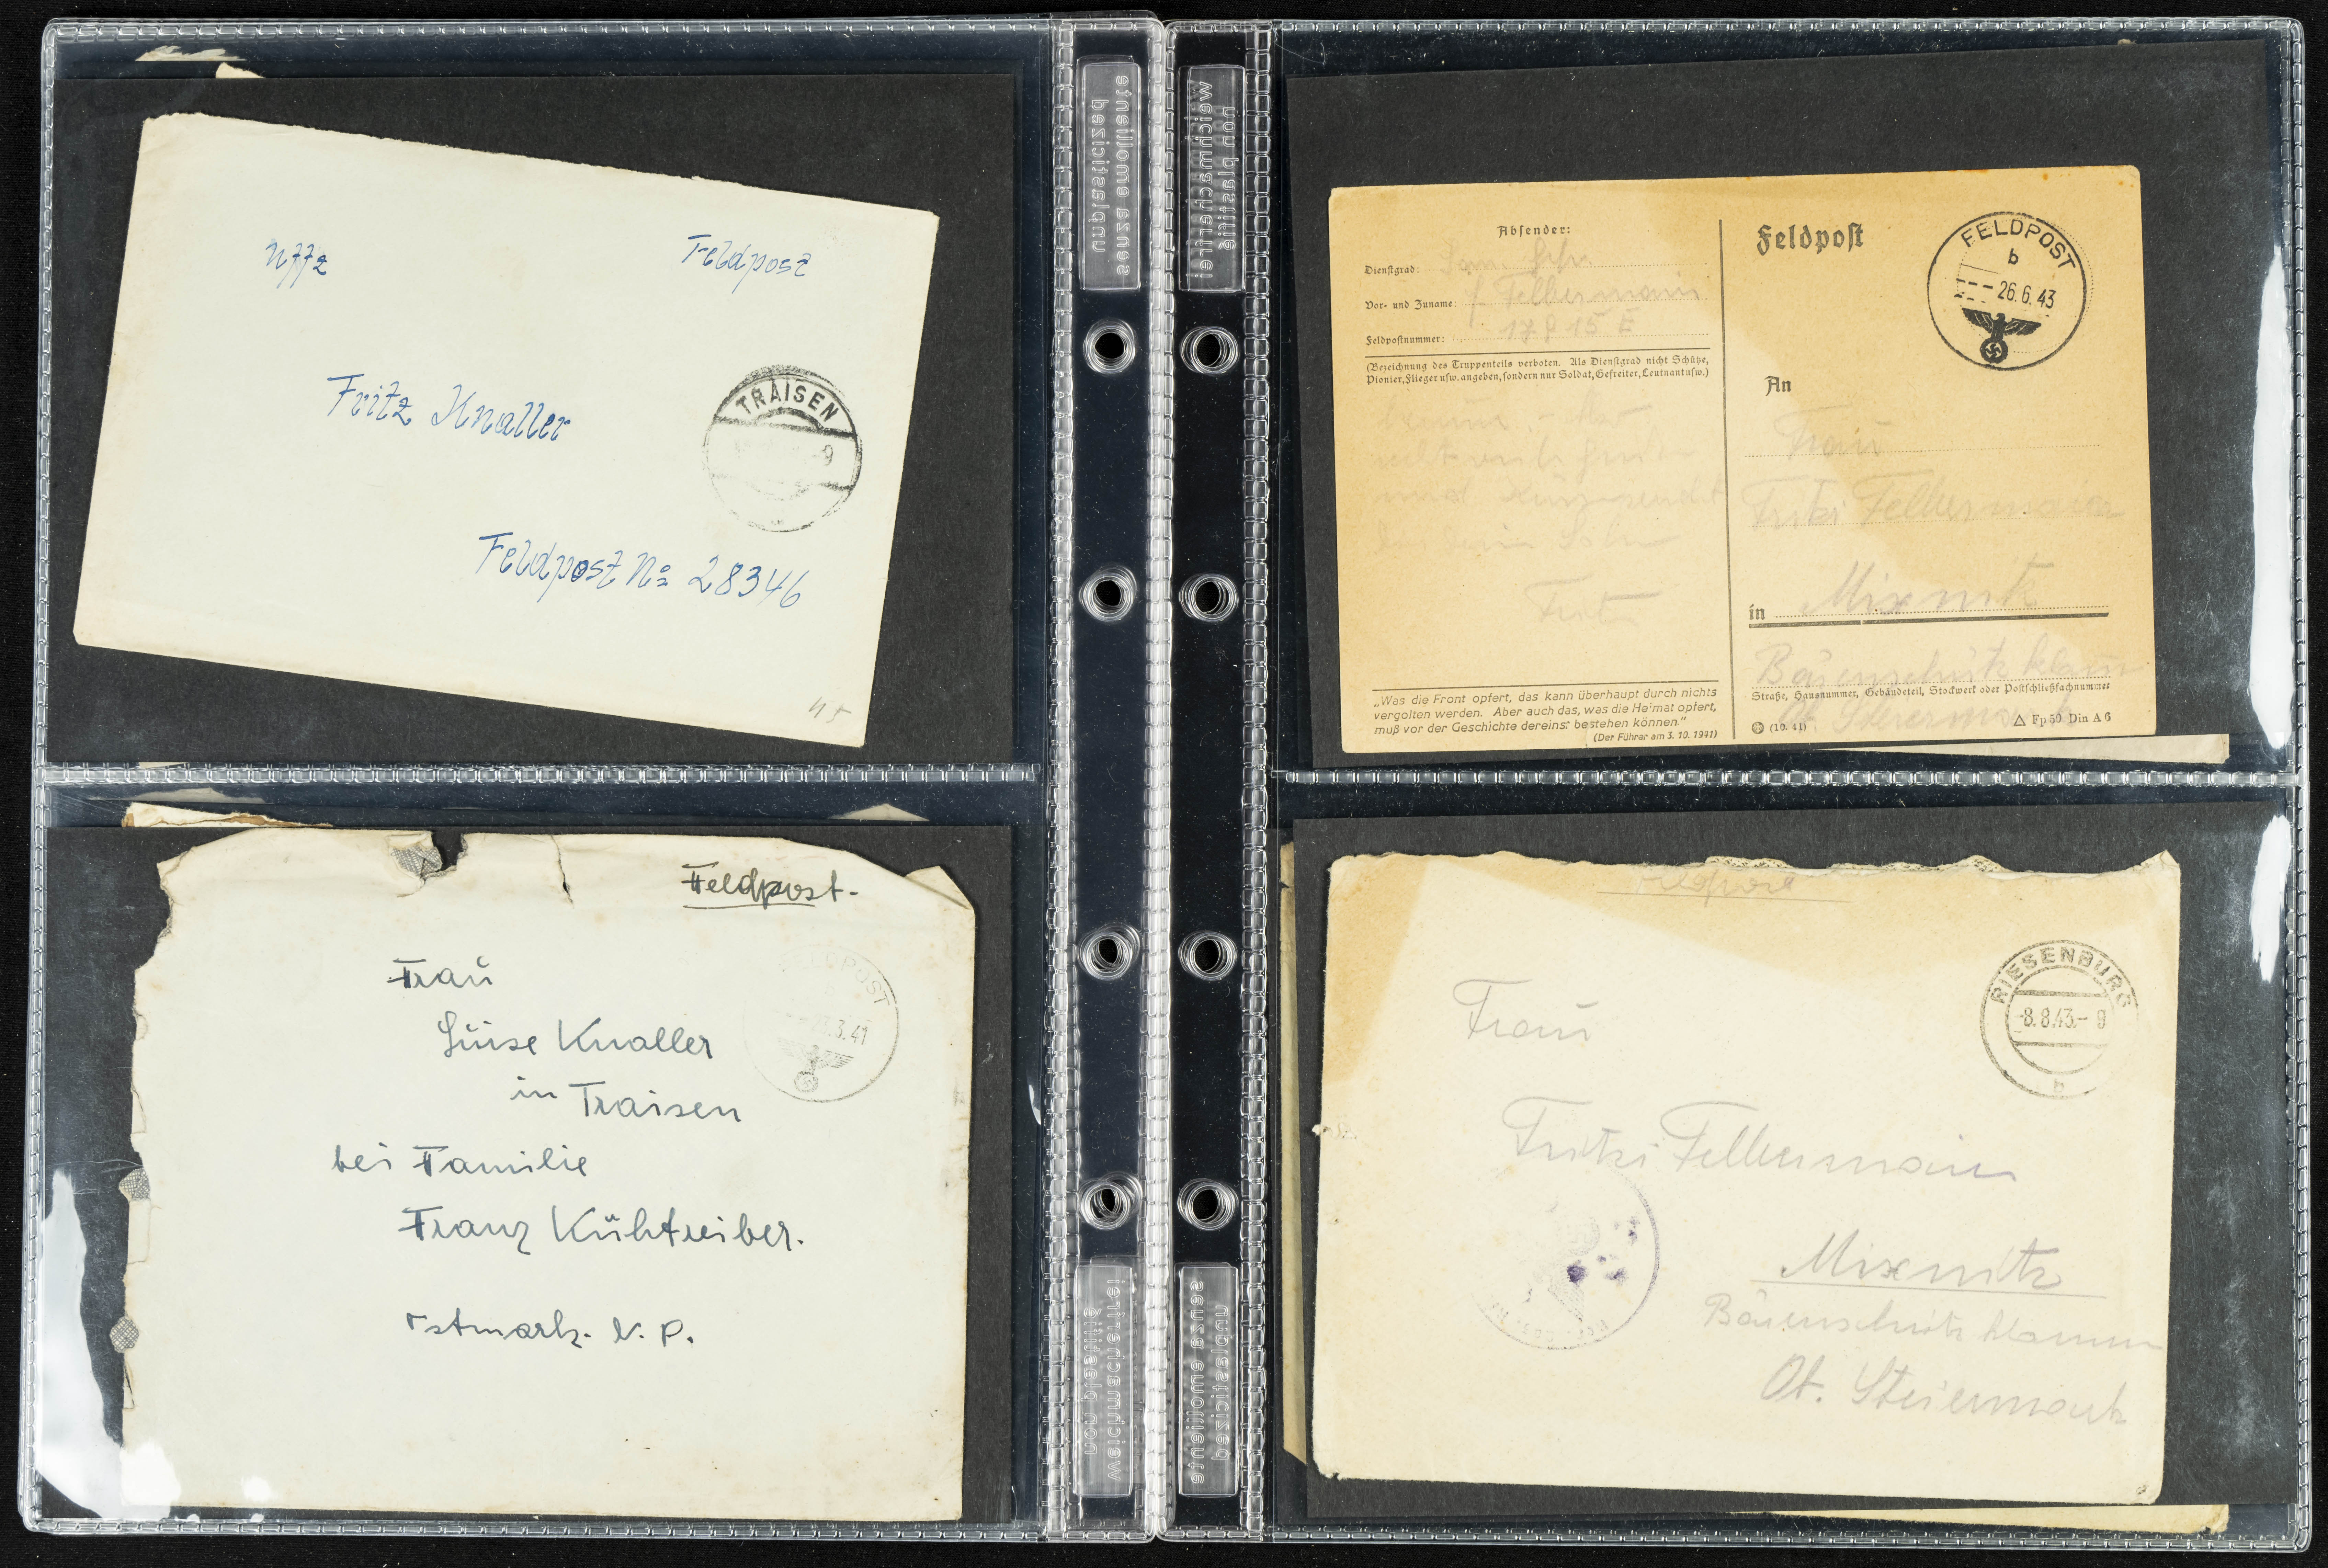 Uffz
Feldpost
Fritz Knaller
TRAISEN
9
Feldpost No 28346
45
Feldpost-
Frau
Luise Knaller
in Traisen
bei Familie
Franz Kühtreiber.
Ostmark. N. D.
FELDPOST
.3.41
Absender:
Dienstgrad:
Vor- und Zuname: F. Felbermair
Feldpostnummer: 17815 E
(Bezeichnung des Truppenteils verboten. Als Dienstgrad nicht Schütze,
Pionier, Flieger usw. angeben, sondern nur Soldat, Gefreiter, Leutnant usw.)
und
dein Sohn
Fritz
„Was die Front opfert, das kann überhaupt durch nichts
vergolten werden. Aber auch das, was die Heimat opfert,
muß vor der Geschichte dereinst bestehen können.“
(Der Führer am 3. 10. 1941)
Feldpost
FELDPOST
b
26.6.43
An
Frau
Fritzi Felbermair
in Mixnitz
Bärenschützklamm
Straße, Hausnummer, Gebäudeteil, Stockwerk oder Postschließfachnummer
Steiermark
(10. 41)
△ Fp 50 Din A 6
Feldpost
RIESENBURG
-8.8.43.- 9
b
Frau
Fritzi Felbermair
Mixnitz
Bärenschützklamm
Ob. Steiermark
von plastille
weichmacherfrei
bezicitsalqun
senza emollients